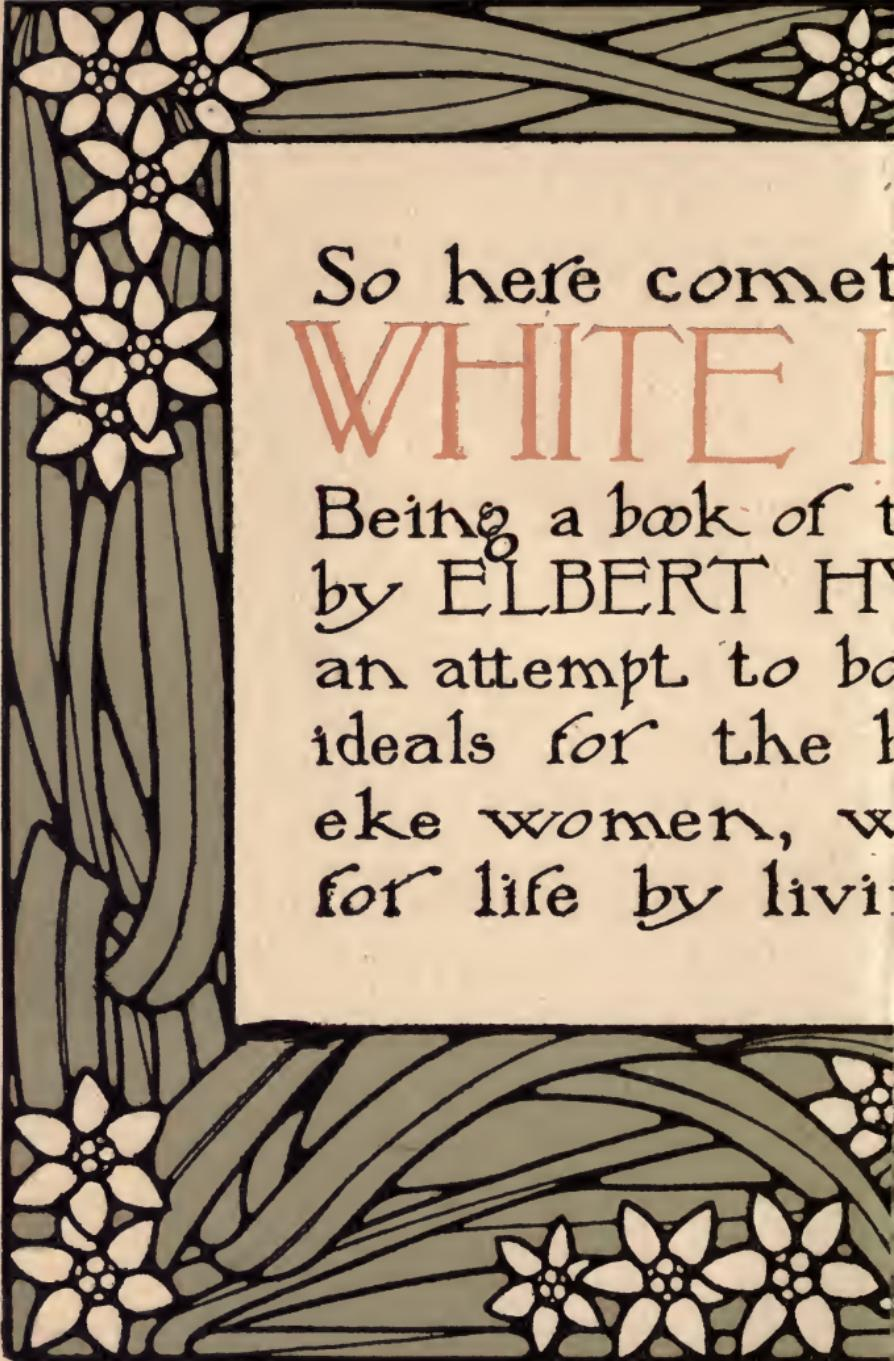 So here comet
WHITE H
Being a book of t
by ELBERT HY
an attempt to bo
ideals for the h
eke women, w
for life by livin